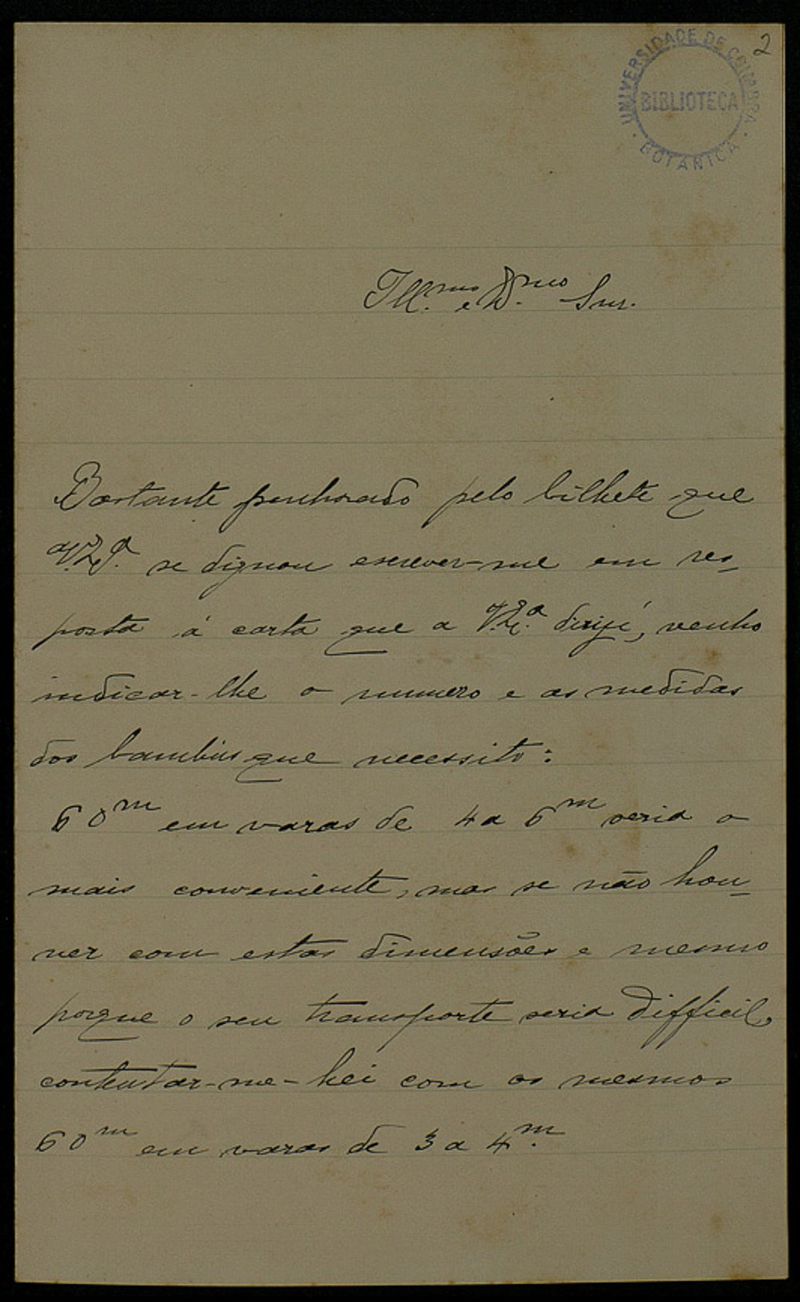 2
UNIVERSIDADE DE COIMBRA
BIBLIOTECA
BOTANICA
Ill.mo e D.mo Snr.
Bastante penhorado pelo bilhete que
V. Ex.ª se dignou escrever-me em res-
posta á carta que a V. Ex.ª dirijí, venho
indicar-lhe o numero e as medidas
dos bambús que necessito:
60m em varas de 4 a 6m seria o
mais conveniente, mas se não hou-
ver com estas dimensões e mesmo
porque o seu transporte seria difficil,
contentar-me-hei com os mesmos
60m em varas de 3 a 4m.